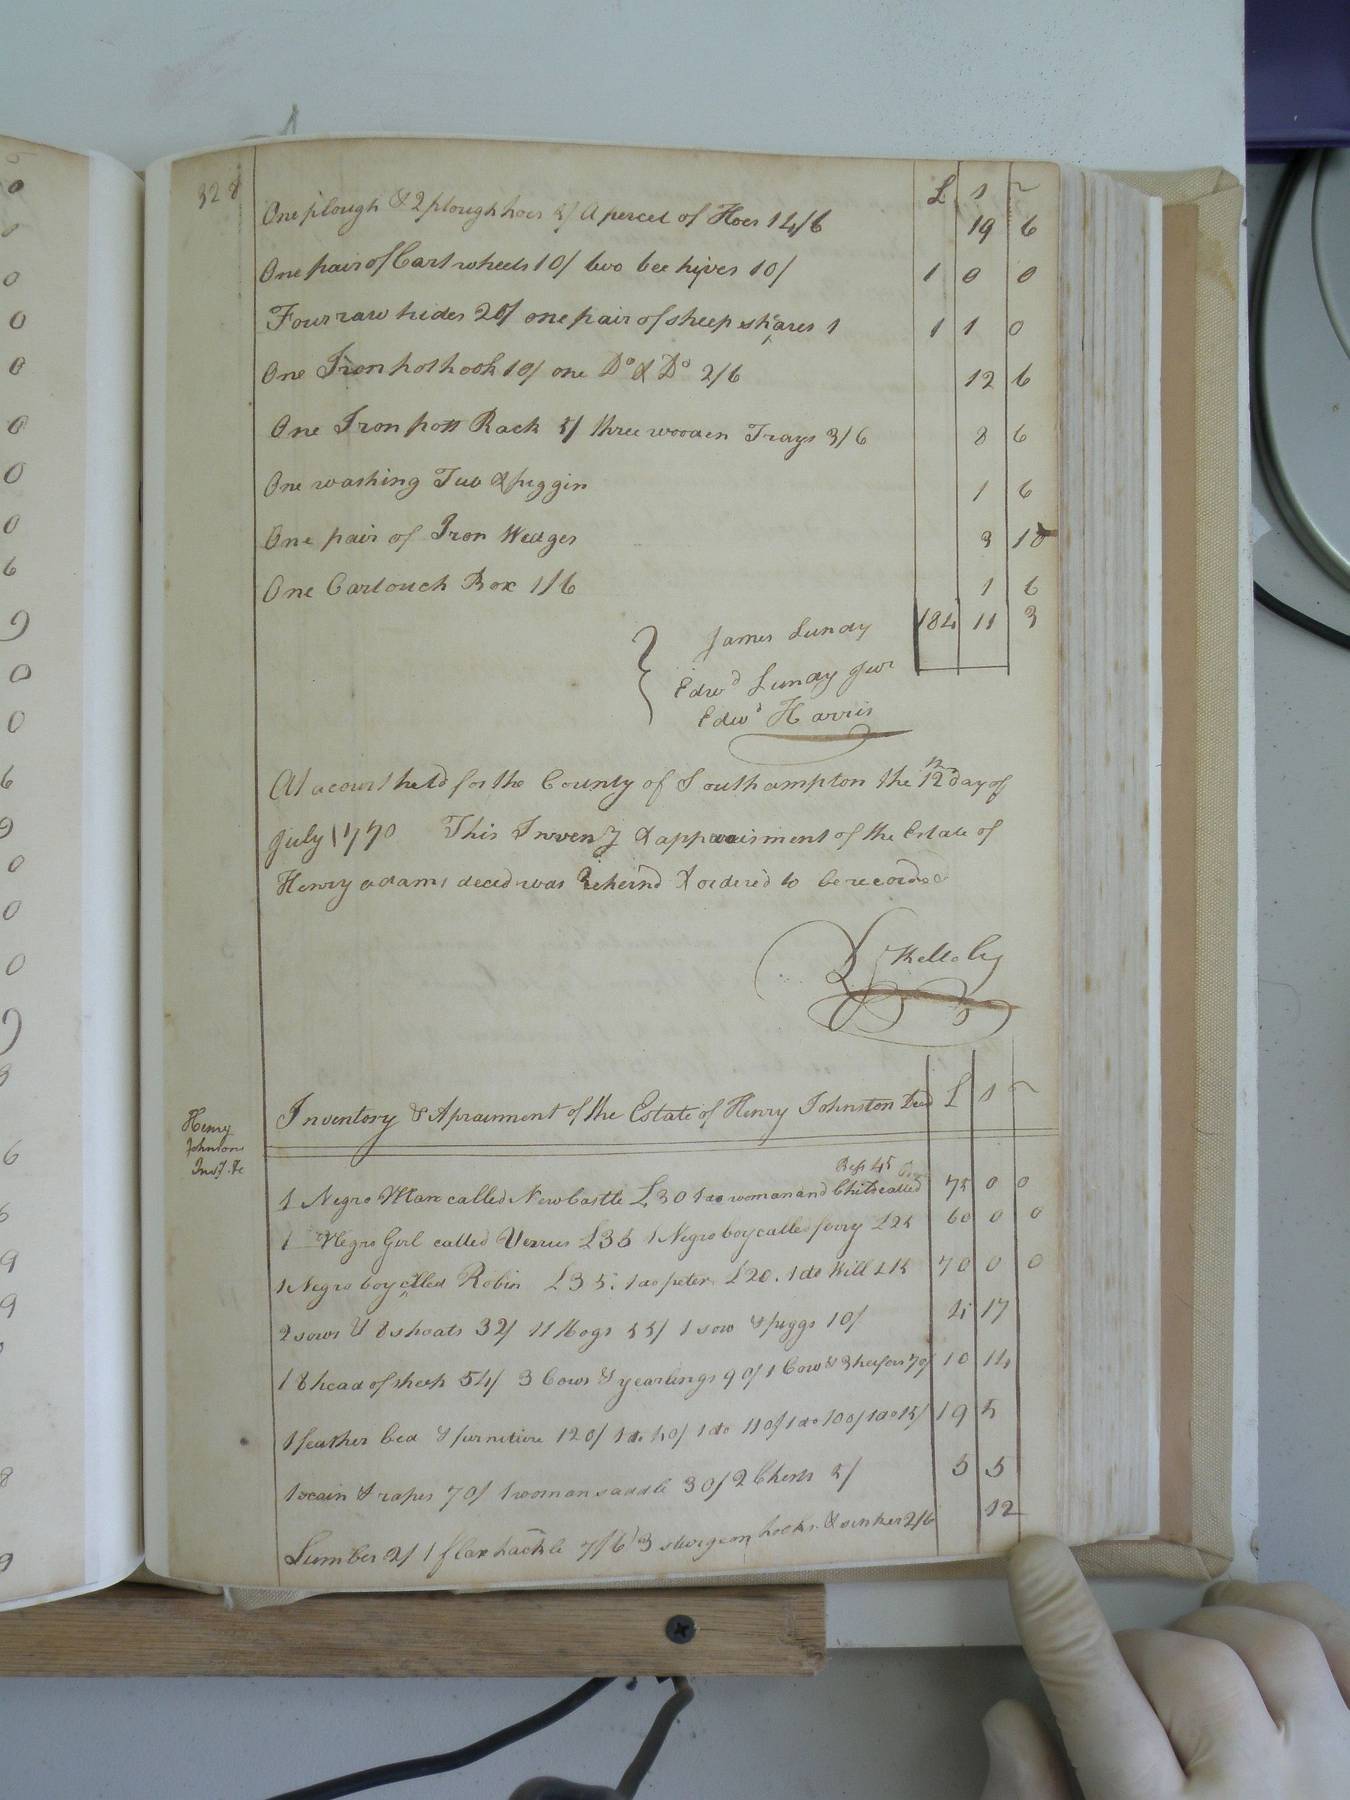 328
£ s
One plough & 2 plough hoes 5/ A percel of Hoes 14/6 19 6
One pair of Cart wheels 10/ two bee hives 10/ 1 0 0
Four raw hides 20/ one pair of sheep shares 1 1 1 0
One Iron pot hook 10/ one Do & Do 2/6 12 6
One Iron pott Rack 5/ three wooden Trays 3/6 8 6
One washing Tub & piggin 1 6
One pair of Iron Wedges 3
One Cartouch Box 1/6 1 6
184 11 3
James Lundy
Edwd Lundy Jur
Edwd Harris
At a court held for the County of Southampton the 12 day of
July 1770 This Inveny & appraisment of the Estate of
Henry adams deced was & ordered to be recorded
Inventory & Apraisment of the Estate of Henry Johnston Decd £ s
Henry
Johnston
Invy. &c
1 Negro Man called New Castle £30 1 do woman and Child called 45 75 0 0
1 Negro Girl called Venus £35 1 Negro boy called £25 60 0 0
1 Negro boy called Robin £35. 1 do peter £20. 1 do Will £15 70 0 0
2 sows & 8 shoats 32/ 11 Hogs 55/ 1 sow & piggs 10/ 4 17
18 head of sheep 54/ 3 Cows & yearlings 90/ 1 Cow & 3 heifers 70/ 10 14
1 feather bed & furniture 120/ 1 do 40/ 1 do 110/ 1 do 100/ 1 do 15/ 19 5
70/ 1 woman saddle 30/ 2 Chests 5/ 5 5
Lumber 2/ 1 flax hackle 7/6 3 sturgeon hooks & 2/6 12